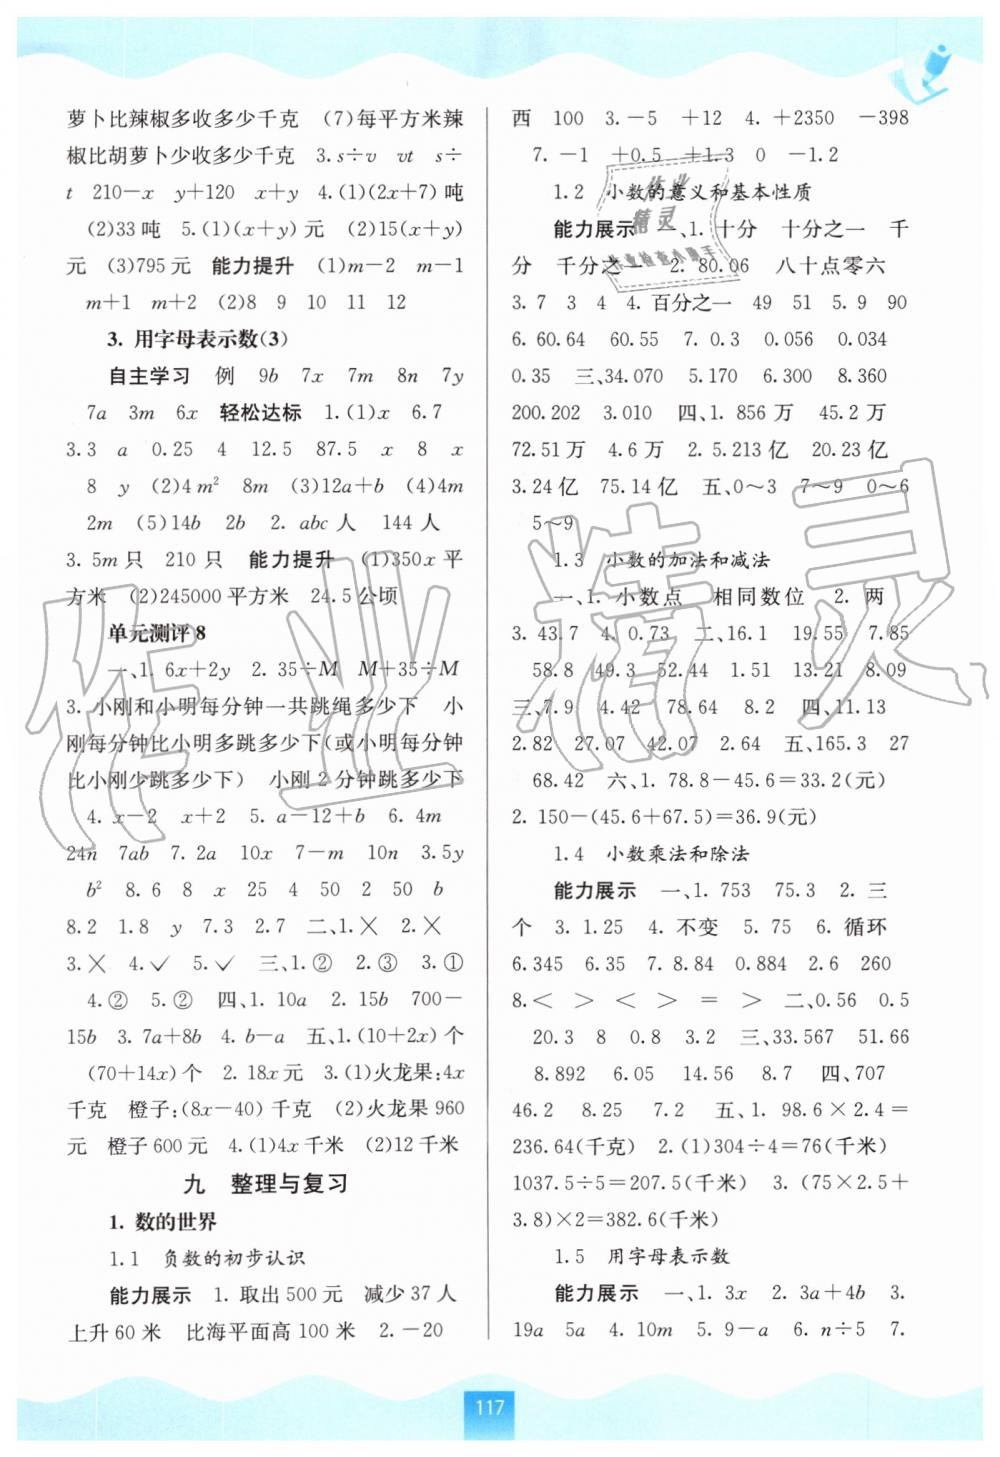 萝卜比辣椒多收多少千克　(7)每平方米辣
椒比胡萝卜少收多少千克　3. s÷v　vt　s÷
t　210－x　y＋120　x＋y　4.(1)(2x＋7)吨
(2)33吨　5.(1)(x＋y)元　(2)15(x＋y)
元　(3)795元　能力提升　(1)m－2　m－1
m＋1　m＋2　(2)8　9　10　11　12
3. 用字母表示数(3)
自主学习　例　9b　7x　7m　8n　7y
7a　3m　6x　轻松达标　1.(1)x　6.7
3.3　a　0.25　4　12.5　87.5　x　8　x
8　y　(2)4m²　8m　(3)12a＋b　(4)4m
2m　(5)14b　2b　2. abc人　144人
3. 5m只　210只　能力提升　(1)350x平
方米　(2)245000平方米　24.5公顷
单元测评8
一、1. 6x＋2y　2. 35÷M　M＋35÷M
3. 小刚和小明每分钟一共跳绳多少下　小
刚每分钟比小明多跳多少下(或小明每分钟
比小刚少跳多少下)　小刚2分钟跳多少下
4. x－2　x＋2　5. a－12＋b　6. 4m
24n　7ab　7. 2a　10x　7－m　10n　3.5y
b²　8. 6　8　x　25　4　50　2　50　b
8.2　1.8　y　7.3　2.7　二、1.╳　2.╳
3.╳　4.✓　5.✓　三、1.②　2.③　3.①
4.②　5.②　四、1. 10a　2. 15b　700－
15b　3. 7a＋8b　4. b－a　五、1.(10＋2x)个
(70＋14x)个　2. 18x元　3.(1)火龙果:4x
千克　橙子:(8x－40)千克　(2)火龙果960
元　橙子600元　4.(1)4x千米　(2)12千米
九　整理与复习
1. 数的世界
1.1　负数的初步认识
能力展示　1. 取出500元　减少37人
上升60米　比海平面高100米　2.－20
西　100　3.－5　＋12　4.＋2350　－398
7.－1　＋0.5　＋1.3　0　－1.2
1.2　小数的意义和基本性质
能力展示　一、1. 十分　十分之一　千
分　千分之一　2. 80.06　八十点零六
3. 7　3　4　4. 百分之一　49　51　5. 9　90
6. 60.64　60.55　7. 0.3　0.056　0.034
0.35　三、34.070　5.170　6.300　8.360
200.202　3.010　四、1. 856万　45.2万
72.51万　4.6万　2. 5.213亿　20.23亿
3. 24亿　75.14亿　五、0～3　7～9　0～6
5～9
1.3　小数的加法和减法
一、1. 小数点　相同数位　2. 两
3. 43.7　4. 0.73　二、16.1　19.55　7.85
58.8　49.3　52.44　1.51　13.21　8.09
三、7.9　4.42　78.64　8.2　四、11.13
2.82　27.07　42.07　2.64　五、165.3　27
68.42　六、1. 78.8－45.6＝33.2(元)
2. 150－(45.6＋67.5)＝36.9(元)
1.4　小数乘法和除法
能力展示　一、1. 753　75.3　2. 三
个　3. 1.25　4. 不变　5. 75　6. 循环
6.345　6.35　7. 8.84　0.884　2.6　260
8.＜　＞　＜　＞　＝　＞　二、0.54　0.5
20.3　8　0.8　3.2　三、33.567　51.66
8.892　6.05　14.56　8.7　四、707
46.2　8.25　7.2　五、1. 98.6×2.4＝
236.64(千克)　2.(1)304÷4＝76(千米)
1037.5÷5＝207.5(千米)　3.(75×2.5＋
3.8)×2＝382.6(千米)
1.5　用字母表示数
能力展示　一、1. 3x　2. 3a＋4b　3.
19a　5a　4. 10m　5. 9－a　6. n÷5　7.
117
作业精灵